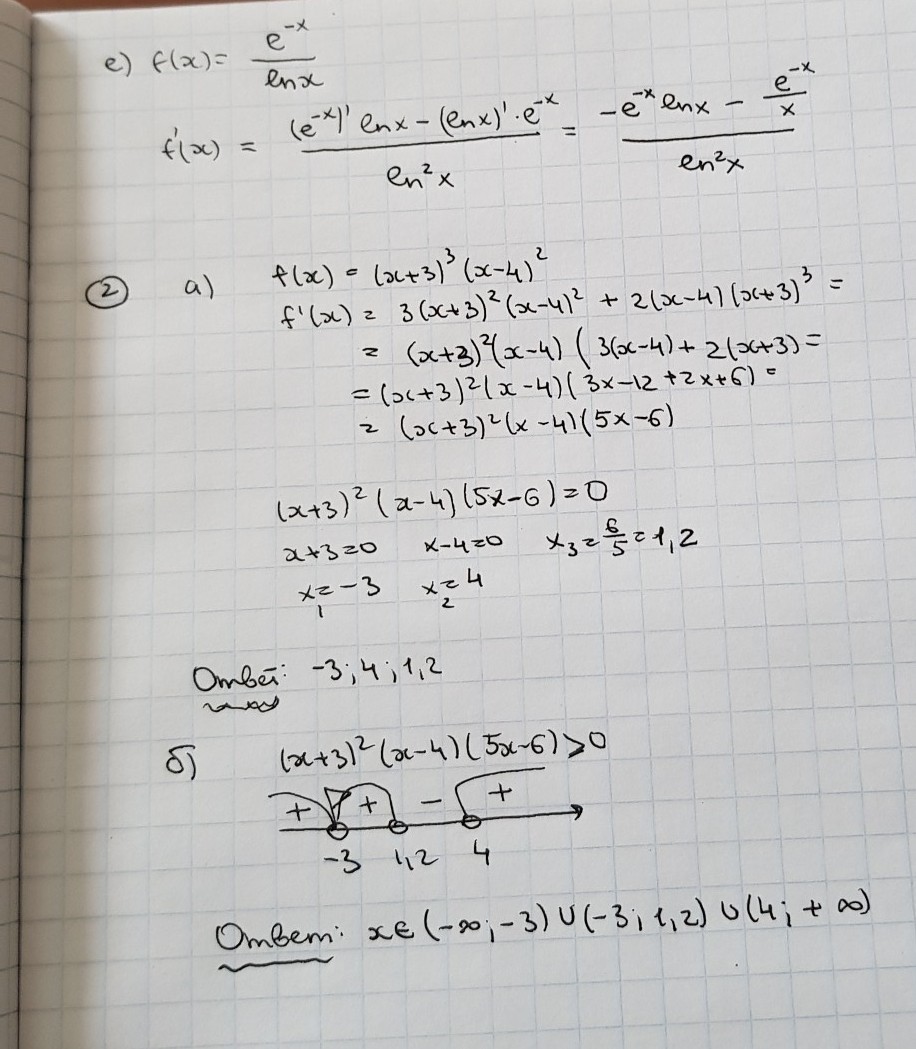 е) f(x) = e^{-x} / ln x
f'(x) = ((e^{-x})' ln x - (ln x)' · e^{-x}) / ln² x = (-e^{-x} ln x - e^{-x}/x) / ln² x
② а) f(x) = (x+3)³ (x-4)²
f'(x) = 3(x+3)² (x-4)² + 2(x-4)(x+3)³ =
= (x+3)²(x-4) ( 3(x-4) + 2(x+3) =
= (x+3)² (x-4) (3x-12+2x+6) =
= (x+3)² (x-4)(5x-6)
(x+3)² (x-4)(5x-6) = 0
x+3=0 x-4=0 x₃ = 6/5 = 1,2
x₁ = -3 x₂ = 4
Ответ: -3; 4; 1,2
б) (x+3)² (x-4)(5x-6) > 0
+ + - +
-3 1,2 4
Ответ: x ∈ (-∞; -3) ∪ (-3; 1,2) ∪ (4; +∞)